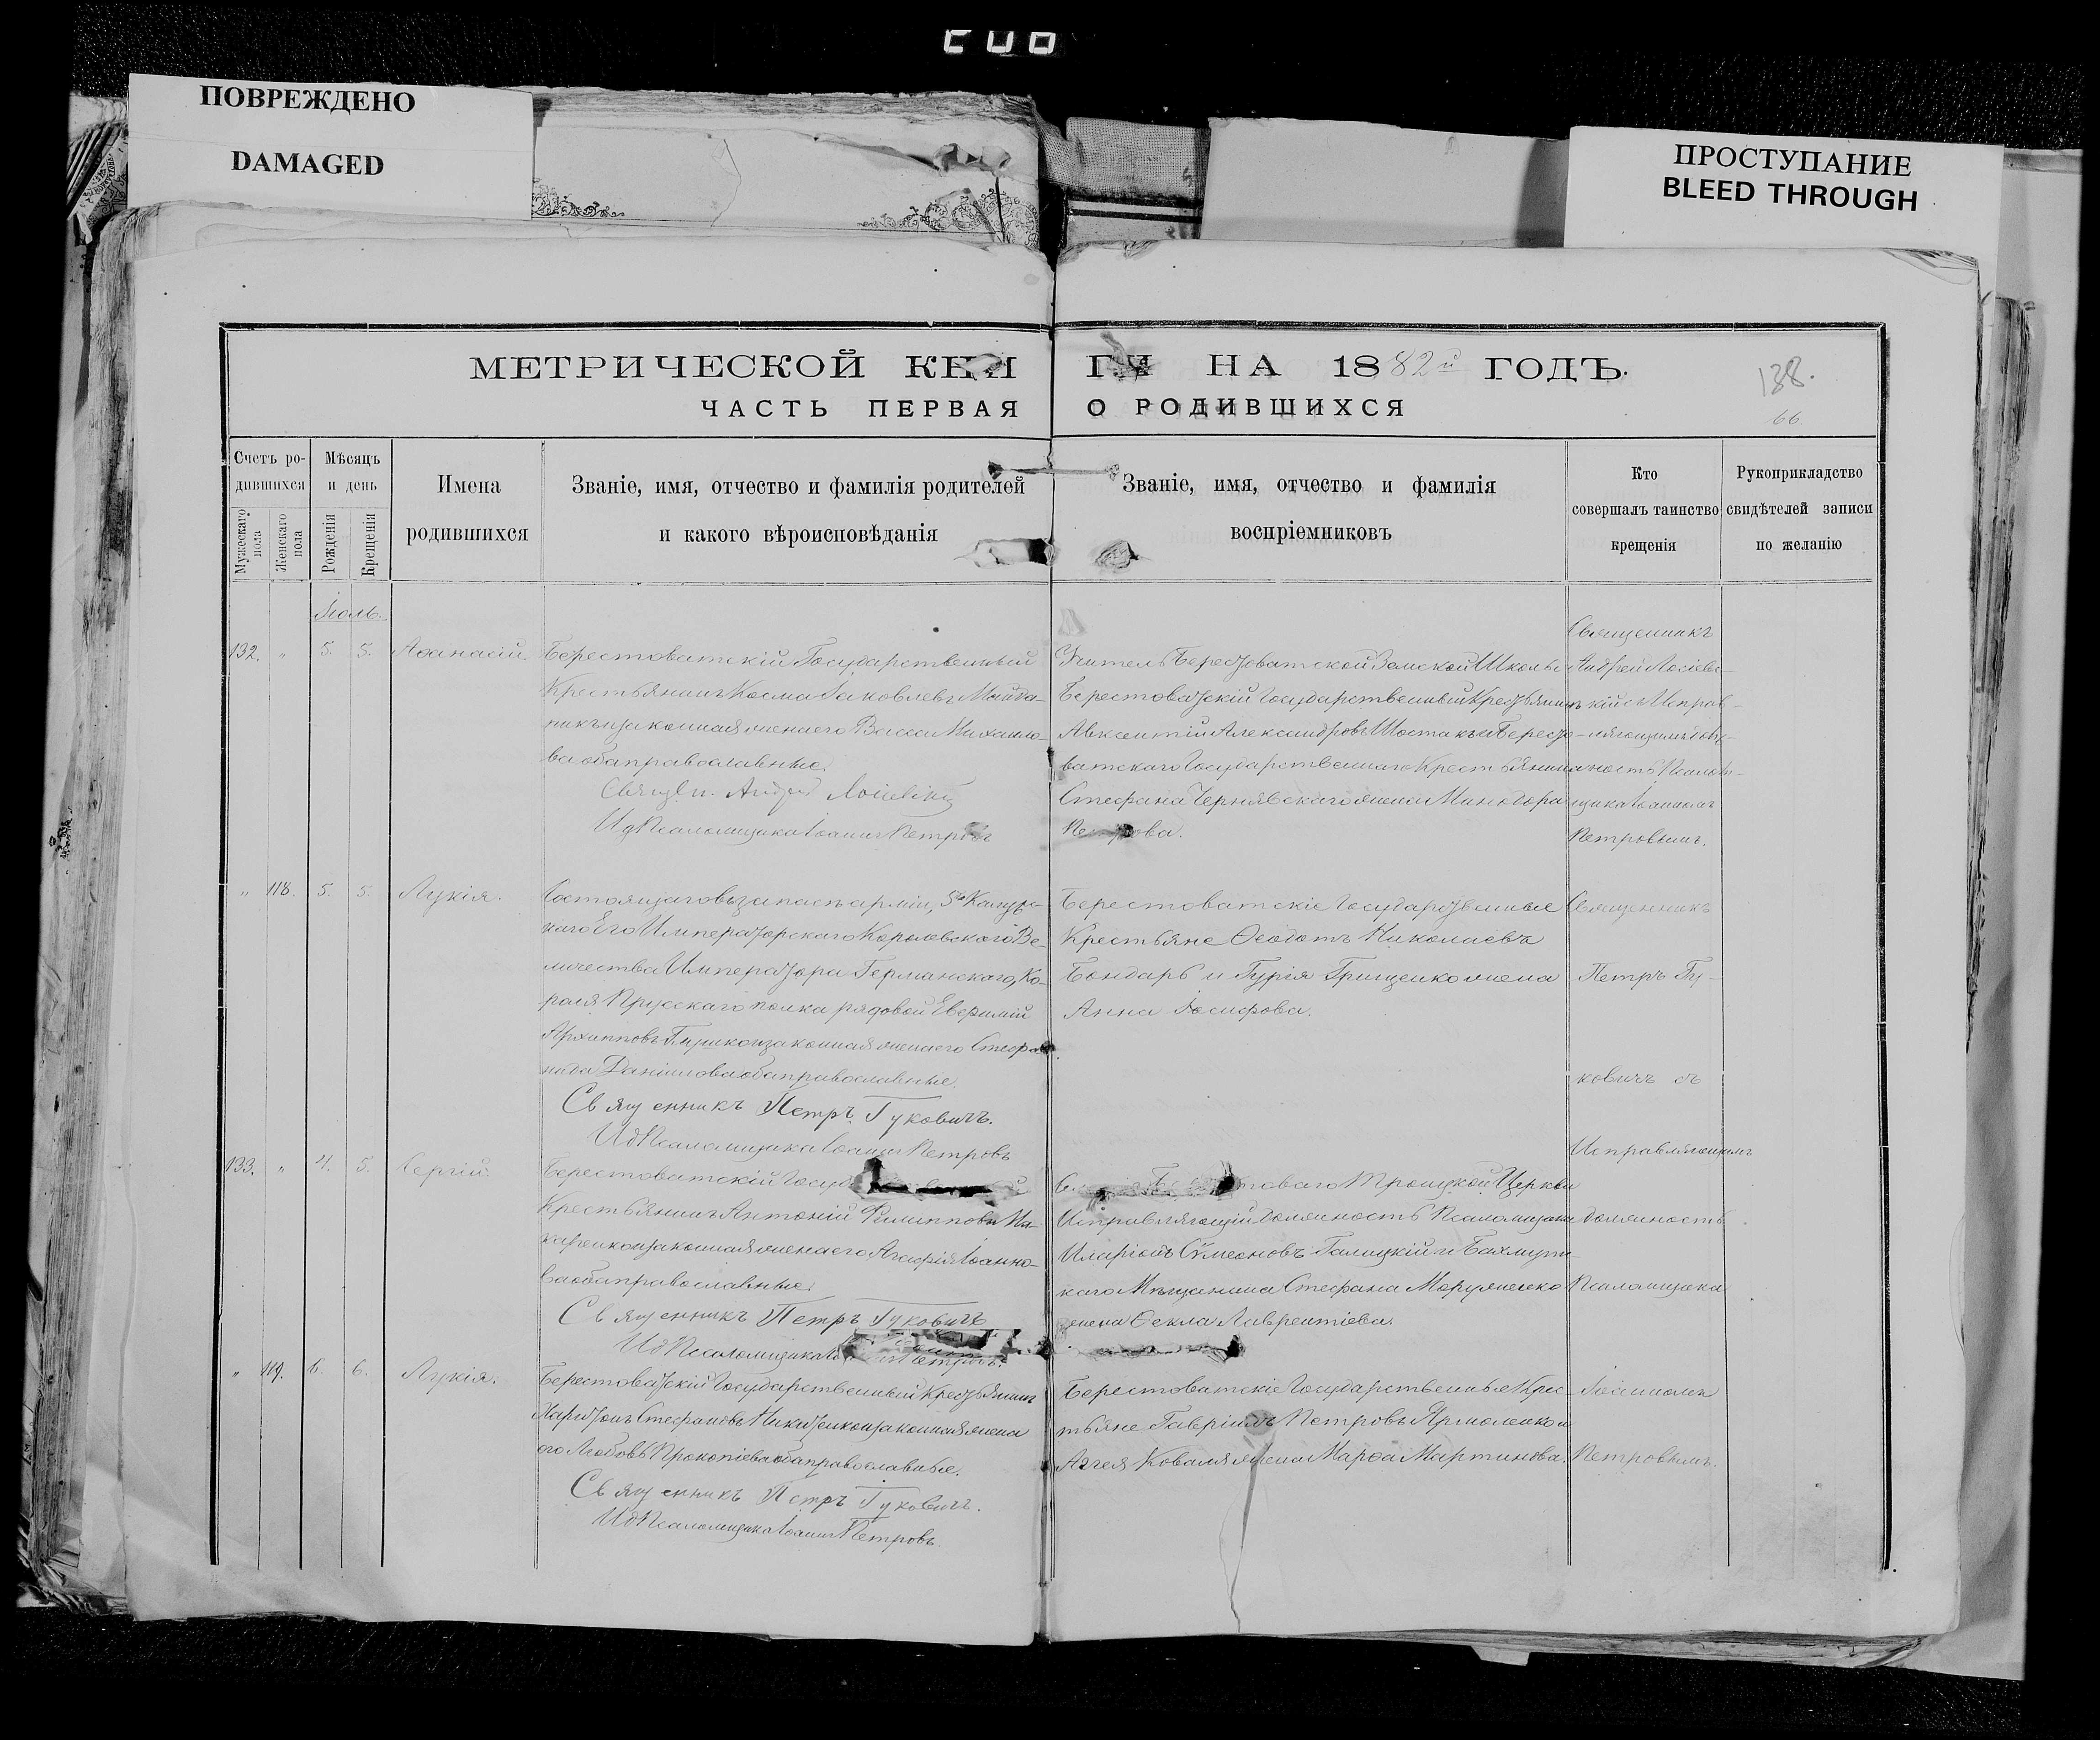 ПОВРЕЖДЕНО
DAMAGED
ПРОСТУПАНИЕ
BLEED THROUGH
МЕТРИЧЕСКОЙ КНИГИ НА 1882й ГОДЪ.
138.
ЧАСТЬ ПЕРВАЯ О РОДИВШИХСЯ
66
Счетъ ро-
дившихся
Мужескаго пола
Женскаго пола
Мѣсяцъ
и день
Рожденія
Крещенія
Имена
родившихся
Званіе, имя, отчество и фамилія родителей
и какого вѣроисповѣданія
Званіе, имя, отчество и фамилія
воспріемниковъ
Кто
совершалъ таинство
крещенія
Рукоприкладство
свидѣтелей записи
по желанію
Іюль.
132. " 5. 5. Аѳанасій.
Берестоватскій Государственный
Крестьянинъ Косма Іаковлевъ
и законная жена его Васса Михаило-
ва оба православные.
Священ. Андрей
Ид Псаломщика Іоаннъ Петровъ
Учитель Берестоватской Земской Школы
Берестоватскій Государственный Крестьянинъ
Авксентій Александровъ Шостакъ и Бересто-
ватскаго Государственнаго Крестьянина
Стефана Чернявскаго жена Минодора
Петрова.
Священникъ
Андрей Лосіевс-
кій с Исправ-
ляющимъ долж-
ность Псалом-
щика Іоанномъ
Петровымъ.
" 118. 5. 5. Лукія.
Состоящаго въ запасѣ арміи, 5го Калужс-
каго Его Императорскаго Королевскаго Ве-
личества Императора Германскаго, Ко-
роля Прусскаго полка рядовой Евфимій
Архипповъ и законная жена его Стефа-
нида Даніилова оба православные.
Священникъ Петръ Гуковичъ.
Ид Псаломщика Іоаннъ Петровъ
Берестоватскіе Государственные
Крестьяне Ѳеодотъ Николаевъ
Бондарь и Гурія Грищенко жена
Анна Іосифова.
Священникъ
Петръ Гу-
ковичъ съ
Исправляющимъ
133. " 4. 5. Сергій.
Берестоватскій
Крестьянинъ Антоній Филипповъ
и законная жена его Агафія Іоанно-
ва оба православные.
Священникъ Петръ Гуковичъ
Ид Псаломщика Петровъ.
Троицкой Церкви
Исправляющій должность Псаломщика
Иларіонъ Сѵмеоновъ Галицкій и Бахмутс-
каго Мѣщанина Стефана
жена Ѳекла Лаврентіева.
должность
Псаломщика
" 119. 6. 6. Лукія.
Берестоватскій Государственный Крестьянинъ
Харитонъ Стефановъ Никитенко и законная жена
его Любовь Прокопіева оба православные.
Священникъ Петръ Гуковичъ.
Ид Псаломщика Іоаннъ Петровъ.
Берестоватскіе Государственные Крес-
тьяне Гавріилъ Петровъ Ярмоленко и
Аггея Коваля жена Марѳа Мартинова.
Іоанномъ
Петровымъ.